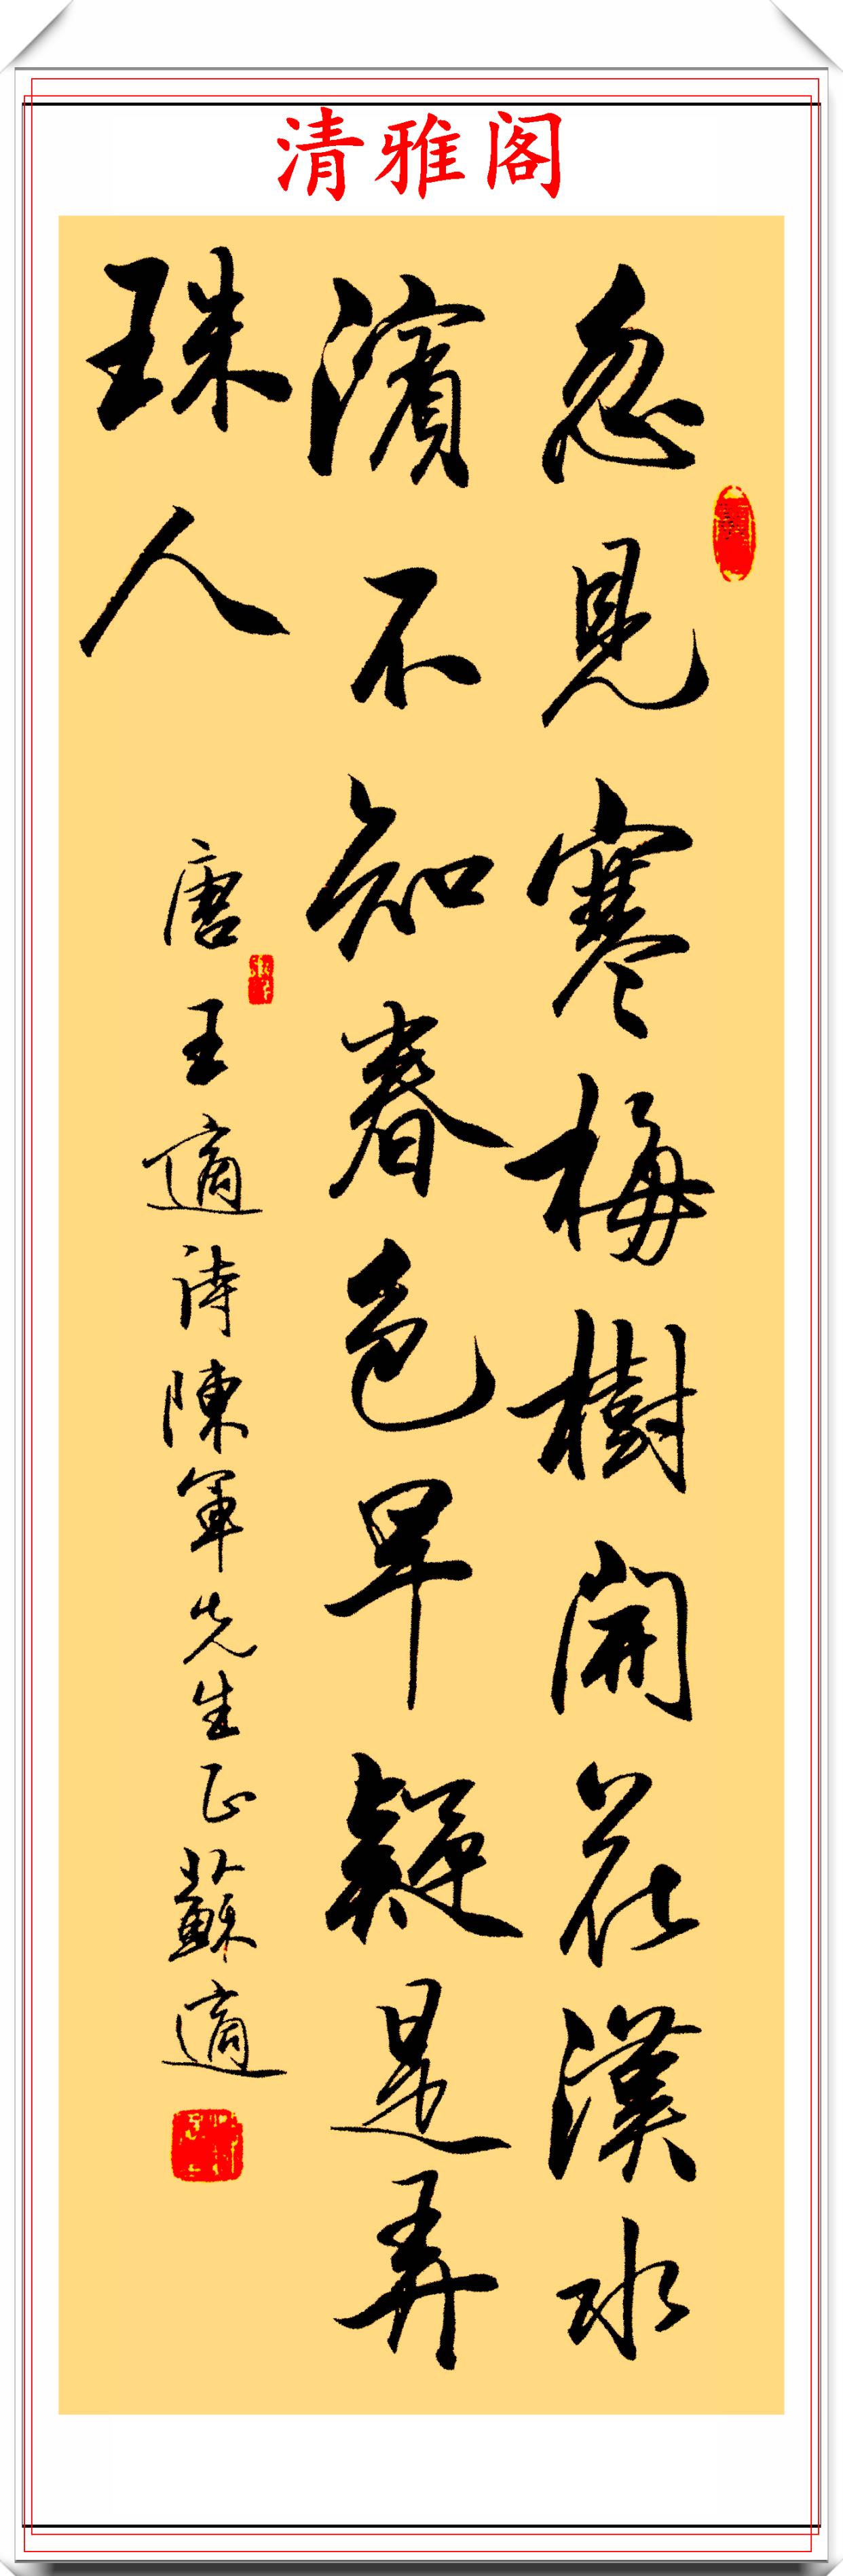 清雅阁
忽見寒梅樹開花漢水
濱不知春色早疑是弄
珠人
唐王適詩陳軍先生正蘇適